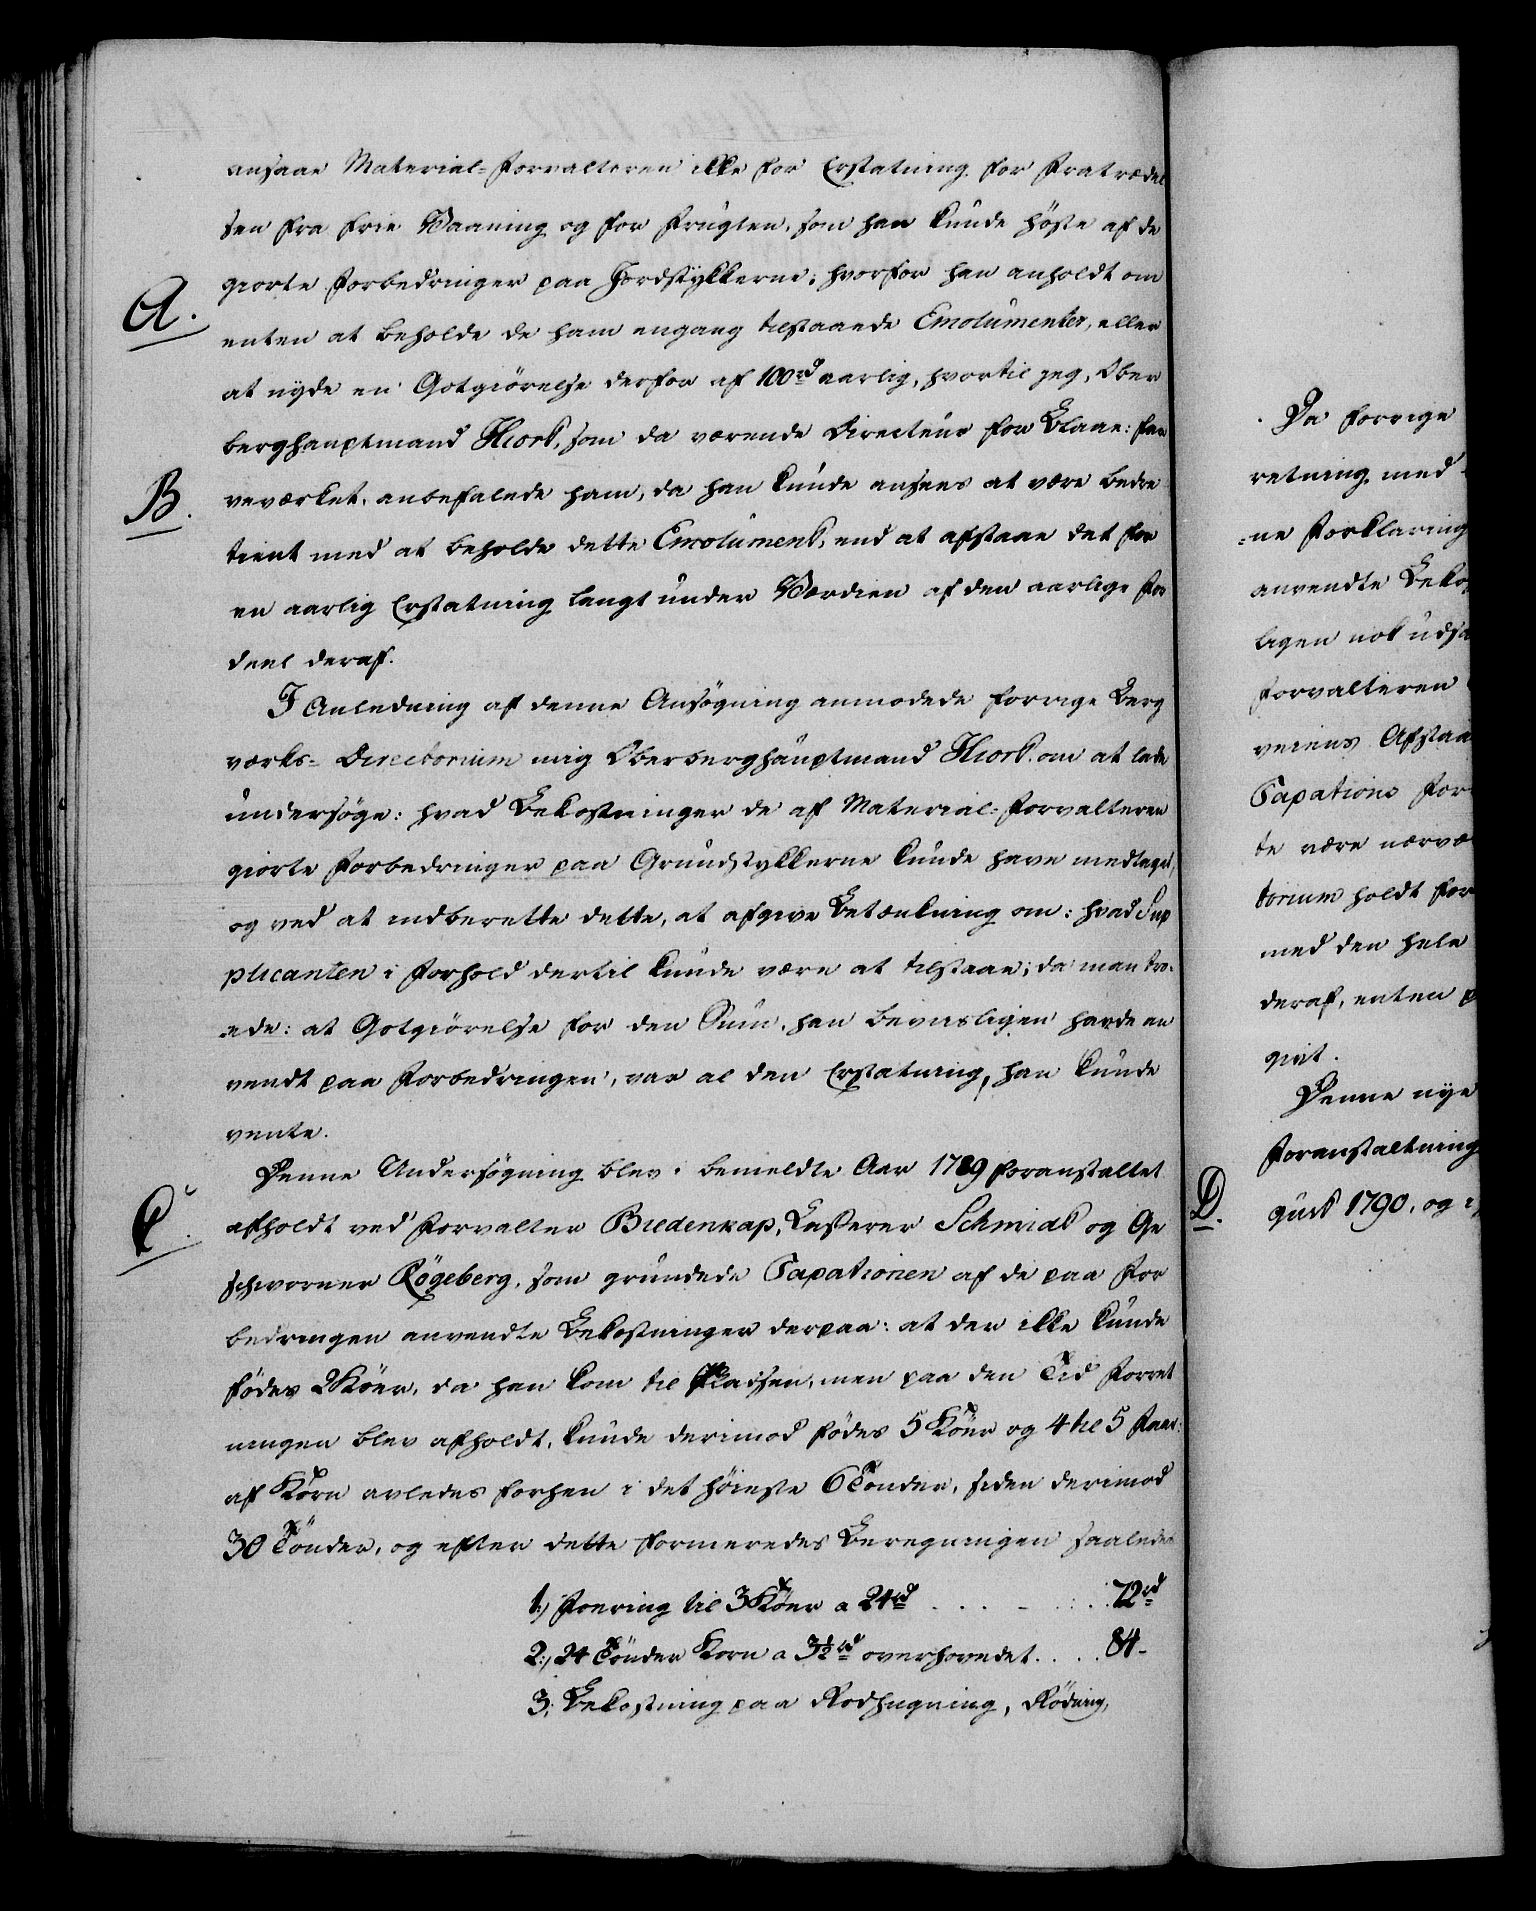 ansaae Material-Forvalteren ikke for Erstatning for Fratrædel
sen fra frie Vaaning og for Frugten, som han kunde høste af de
giorte Forbedringer paa Jordstykkerne; hvorfor han anholdt om
A.
enten at beholde de ham engang tilstaaede Emolumenter, eller
at nyde en Godtgiørelse derfor af 100 rd aarlig, hvortil jeg, Ober
berghauptmand Hiort, som da værende Directeur for Blaae-Far
B.
veværket, anbefalede ham, da han kunde ansees at være bedre
tient med at beholde dette Emolument, end at afstaae det for
en aarlig Erstatning langt under Værdien af den aarlige For
deel deraf.
I Anledning af denne Ansøgning anmodede forrige Berg
værks-Directorium mig Oberberghauptmand Hiort om at lade
undersøge: hvad Bekostninger de af Material-Forvalteren
giorte Forbedringer paa Grundstykkerne kunde have medtaget,
og ved at indberette dette, at afgive Betænkning om: hvad Sup
plicanten i Forhold dertil kunde være at tilstaae; da man tro-
ede: at Gotgiørelse for den Sum, han beviisligen havde an
vendt paa Forbedringen, var al den Erstatning, han kunde
vente.
Denne Undersøgning blev i bemeldte Aar 1789 foranstaltet
C.
afholdt ved Forvalter Bredenkap, Casserer Schmidt og Ge
schworner Røgeberg, som grundede Taxationen af de paa For
bedringen anvendte Bekostninger derpaa: at der ikke kunde
fødes 2 Køer, da han kom til Pladsen, men paa den Tid Forret
ningen blev afholdt, kunde derimod fødes 5 Køer og 4 til 5 Faar:
af Korn avledes forhen i det høieste 6 Tønder, siden derimod
30 Tønder, og efter dette formeredes Beregningen saaledes
1:) Foering til 3 Køer a 24 rd . . . . . . 72 rd
2:) 24 Tønder Korn a 3½ rd overhovedet . . . . 84 -
3:, Bekostning paa Rodhugning, Rødning,
Da forrige
retning med
-ne Forklaring
anvendte Beko
ligen nok uds
Forvalteren
veiens Afstaa
Taxations For
te være nærvæ
torium holdt for
med den hele
deraf, enten
givt.
Denne nye
Foranstaltning
D.
gust 1790, og